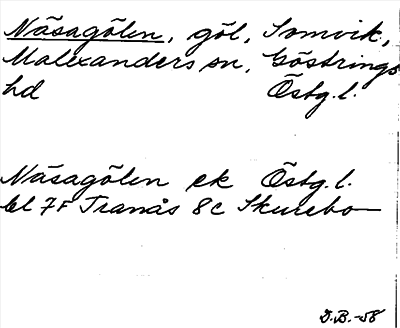 Näsagölen, göl, Somvik,
Malexanders sn, Göstrings
hd Östg.l.
Näsagölen ek Östg.l.
bl 7F Tranås 8c Skurebo
D.B.-58